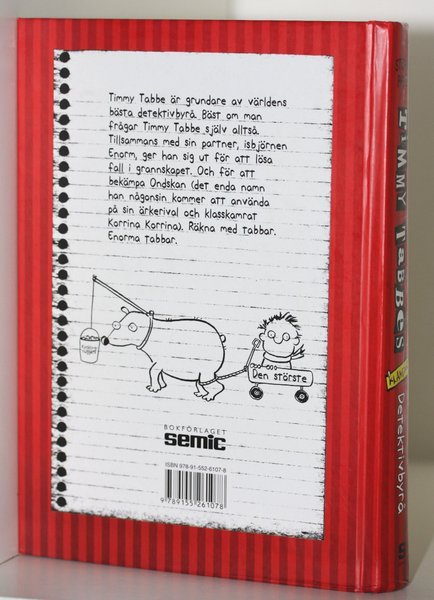 Timmy Tabbe är grundare av världens
bästa detektivbyrå. Bäst om man
frågar Timmy Tabbe själv alltså.
Tillsammans med sin partner, isbjörnen
Enorm, ger han sig ut för att lösa
fall i grannskapet. Och för att
bekämpa Ondskan (det enda namn
han någonsin kommer att använda
på sin ärkerival och klasskamrat
Korrina Korrina). Räkna med tabbar.
Enorma tabbar.
Den störste
BOKFÖRLAGET
semic
ISBN 978-91-552-6107-8
9 789155 261078
TIMMY TABBES
Detektivbyrå
S